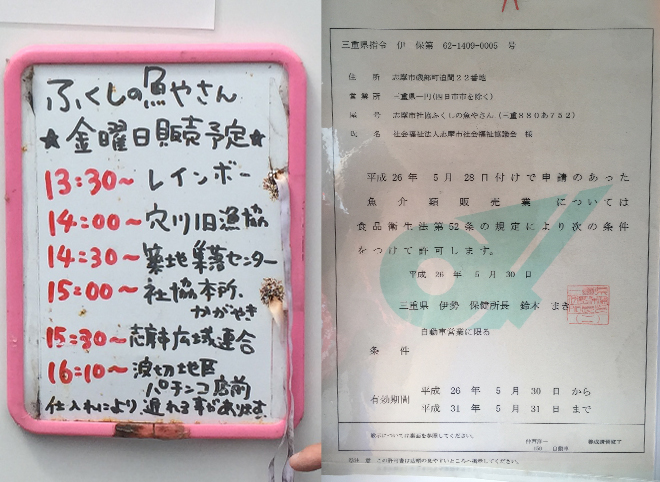 ふくしの魚やさん
★金曜日販売予定★
13:30～レインボー
14:00～穴川旧漁協
14:30～築地集落センター
15:00～社協本所、
かがやき
15:30～志摩広域連合
16:10～波切地区
パチンコ店前
仕入れにより、遅れる事があります
三重県指令 伊 保第 62-1409-0005 号
住 所 志摩市磯部町迫間22番地
営業所 三重県一円(四日市市を除く)
屋 号 志摩市社協ふくしの魚やさん(三重880あ752)
氏 名 社会福祉法人志摩市社会福祉協議会 様
平成26年 5月 28日付けで申請のあった
魚介類販売業については
食品衛生法第52条の規定により次の条件
をつけて許可します。
平成 26 年 5 月 30 日
三重県 伊勢 保健所長 鈴木 まき
自動車営業に限る
条 件
有効期間
平成 26 年 5 月 30 日 から
平成 31 年 5 月 31 日 まで
教示については裏面を参照してください。
150 自動車